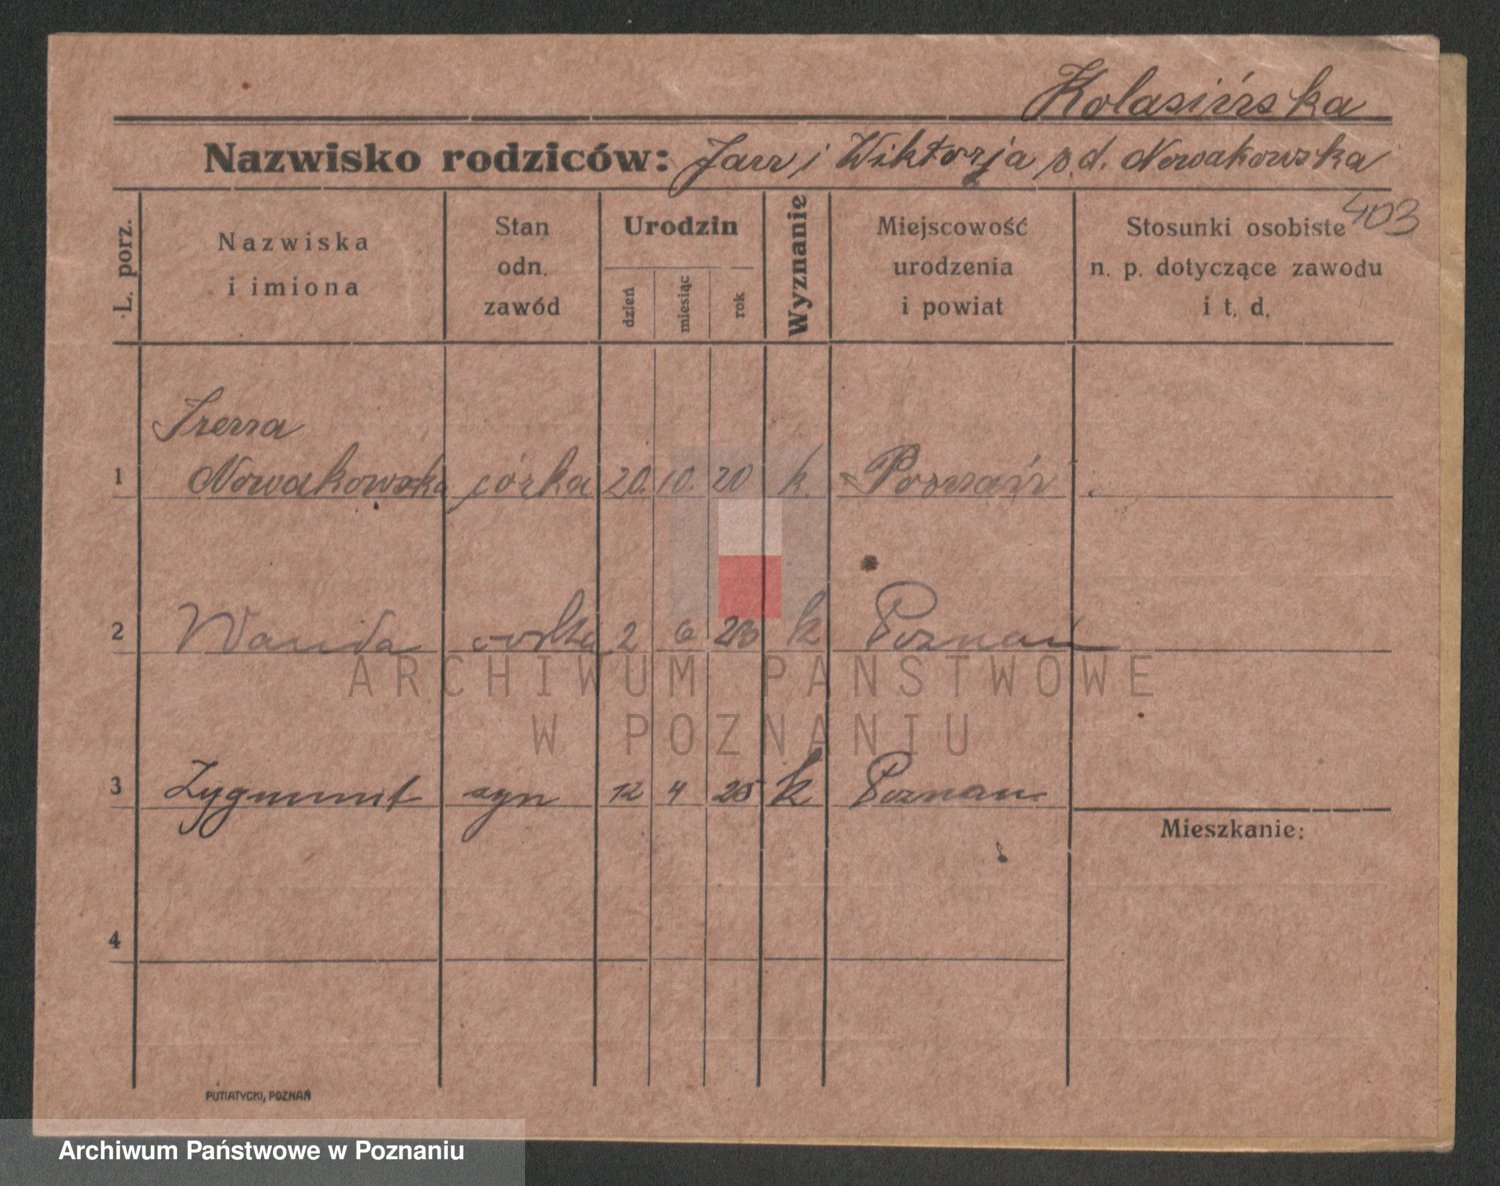 Kolasińska
Nazwisko rodziców: Jan i Wiktorja z d. Nowakowska
403
L. porz.
Nazwiska
i imiona
Stan
odn.
zawód
Urodzin
dzień
miesiąc
rok
Wyznanie
Miejscowość
urodzenia
i powiat
Stosunki osobiste
n. p. dotyczące zawodu
i t. d.
Irena
1 Nowakowska córka 20. 10. 20 k. Poznań
2 Wanda córka 2 6 23 k Poznań
ARCHIWUM PAŃSTWOWE
W POZNANIU
3 Zygmunt syn 12 4 25 k Poznan
Mieszkanie:
4
PUTIATYCKI, POZNAŃ
Archiwum Państwowe w Poznaniu